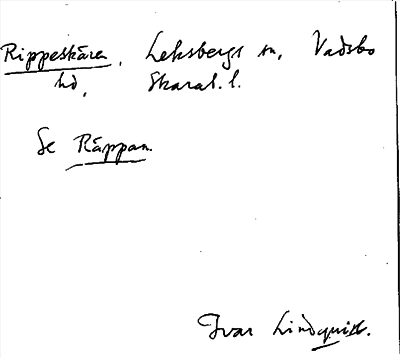 Rippeskären, Leksbergs sn, Vadsbo
hd, Skarab. l.
Se Räppan.
Ivar Lindquist.